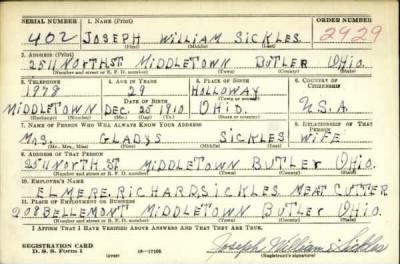 SERIAL NUMBER 1. NAME (Print) ORDER NUMBER
402 JOSEPH WILLIAM SICKLES 2929
(First) (Middle) (Last)
2. ADDRESS (Print)
2511 NORTH ST MIDDLETOWN BUTLER OHIO.
(Number and street or R. F. D. number) (Town) (County) (State)
3. TELEPHONE 4. AGE IN YEARS 5. PLACE OF BIRTH 6. COUNTRY OF CITIZENSHIP
1978 29 HOLLOWAY
DATE OF BIRTH (Town or county)
MIDDLETOWN DEC. 25 1910 OHIO. U.S.A.
(Exchange) (Number) (Mo.) (Day) (Yr.) (State or country)
7. NAME OF PERSON WHO WILL ALWAYS KNOW YOUR ADDRESS 8. RELATIONSHIP OF THAT PERSON
MRS. GLADYS SICKLES WIFE
(Mr., Mrs., Miss) (First) (Middle) (Last)
9. ADDRESS OF THAT PERSON
2511 NORTH ST MIDDLETOWN BUTLER OHIO.
(Number and street or R. F. D. number) (Town) (County) (State)
10. EMPLOYER'S NAME
ELMERE RICHARD SICKLES MEAT CUTTER
11. PLACE OF EMPLOYMENT OR BUSINESS
208 BELLEMONT MIDDLETOWN BUTLER OHIO
(Number and street or R. F. D. number) (Town) (County) (State)
I AFFIRM THAT I HAVE VERIFIED ABOVE ANSWERS AND THAT THEY ARE TRUE.
REGISTRATION CARD
D. S. S. Form 1 16—17105 Joseph William Sickles
(Registrant's signature)